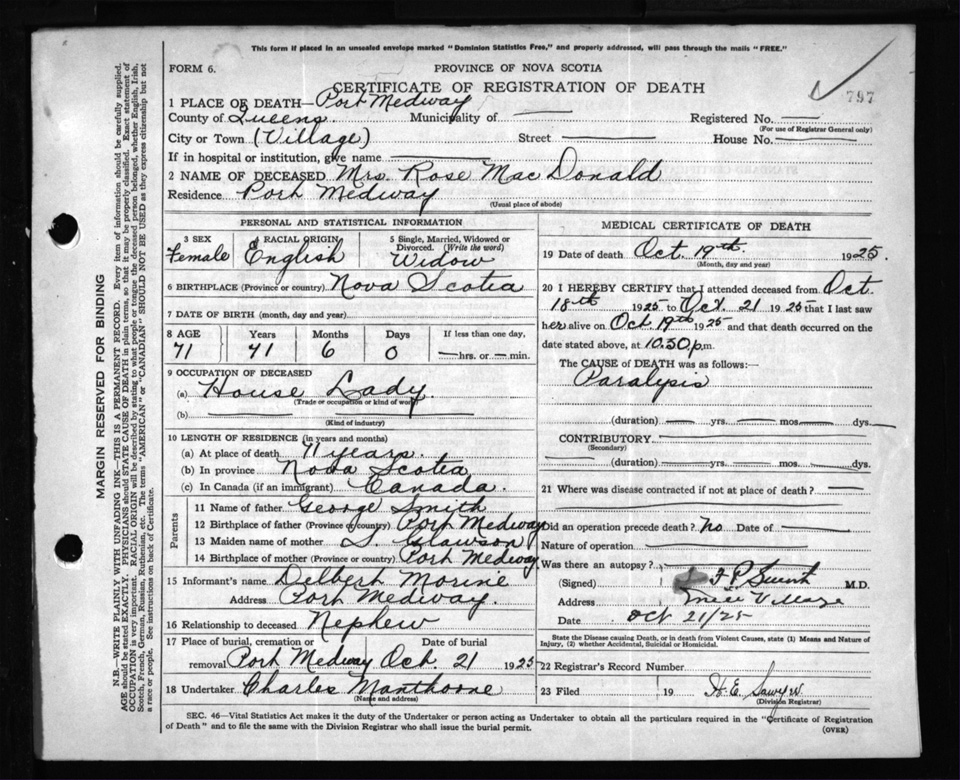 This form if placed in an unsealed envelope marked "Dominion Statistics Free," and properly addressed, will pass through the mails "FREE."
FORM 6.
PROVINCE OF NOVA SCOTIA
CERTIFICATE OF REGISTRATION OF DEATH
797
1 PLACE OF DEATH— Port Medway
County of Queens Municipality of — Registered No. —
(For use of Registrar General only)
City or Town (Village) Street — House No. —
If in hospital or institution, give name —
2 NAME OF DECEASED Mrs. Rose MacDonald
Residence Port Medway
(Usual place of abode)
PERSONAL AND STATISTICAL INFORMATION
3 SEX
Female
4 RACIAL ORIGIN
English
5 Single, Married, Widowed or Divorced. (Write the word)
Widow
6 BIRTHPLACE (Province or country) Nova Scotia
7 DATE OF BIRTH (month, day and year)
8 AGE Years Months Days If less than one day,
71 71 6 0 — hrs. or — min.
9 OCCUPATION OF DECEASED
(a) House Lady
(Trade or occupation or kind of work)
(b) —
(Kind of industry)
10 LENGTH OF RESIDENCE (in years and months)
(a) At place of death 71 years
(b) In province Nova Scotia
(c) In Canada (if an immigrant) Canada.
Parents
11 Name of father George Smith
12 Birthplace of father (Province or country) Port Medway
13 Maiden name of mother S. Slawson
14 Birthplace of mother (Province or country) Port Medway
15 Informant's name Delbert Morine
Address Port Medway.
16 Relationship to deceased Nephew
17 Place of burial, cremation or Date of burial
removal Port Medway Oct. 21 1925
18 Undertaker Charles Manthorne
(Name and address)
MEDICAL CERTIFICATE OF DEATH
19 Date of death Oct. 19th 1925.
(Month, day and year)
20 I HEREBY CERTIFY that I attended deceased from Oct.
18th 1925 to Oct. 21 1925 that I last saw
her alive on Oct 19th 1925 and that death occurred on
date stated above, at 10.30 p.m.
The CAUSE of DEATH was as follows:—
Paralysis
(duration) — yrs. — mos. — dys. —
CONTRIBUTORY —
(Secondary)
— (duration) — yrs. — mos. — dys.
21 Where was disease contracted if not at place of death? —
Did an operation precede death? No Date of —
Nature of operation —
Was there an autopsy? —
(Signed) F P Smith M.D.
Address Mill Village
Date Oct 21/25
State the Disease causing Death, or in death from Violent Causes, state (1) Means and Nature of Injury, (2) whether Accidental, Suicidal or Homicidal.
22 Registrar's Record Number
23 Filed 19 H. E.
(Division Registrar)
SEC. 46—Vital Statistics Act makes it the duty of the Undertaker or person acting as Undertaker to obtain all the particulars required in the "Certificate of Registration
of Death" and to file the same with the Division Registrar who shall issue the burial permit.
(OVER)
MARGIN RESERVED FOR BINDING
N.B.—WRITE PLAINLY WITH UNFADING INK—THIS IS A PERMANENT RECORD. Every item of information should be carefully supplied.
AGE should be stated EXACTLY. PHYSICIANS should STATE CAUSE OF DEATH in plain terms, so that it may be properly classified. Exact statement of
OCCUPATION is very important. RACIAL ORIGIN will be described by stating to what people or tongue the deceased person belonged, whether English, Irish,
Scotch, French, German, Russian, Ruthenian, etc. The terms "AMERICAN" or "CANADIAN" SHOULD NOT BE USED as they express citizenship but not
a race or people. See instructions on back of Certificate.